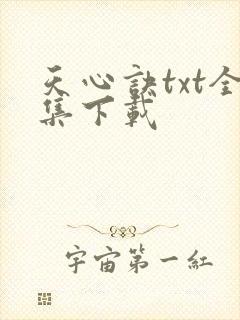 天心訣txt全
集下載
宇宙第一紅